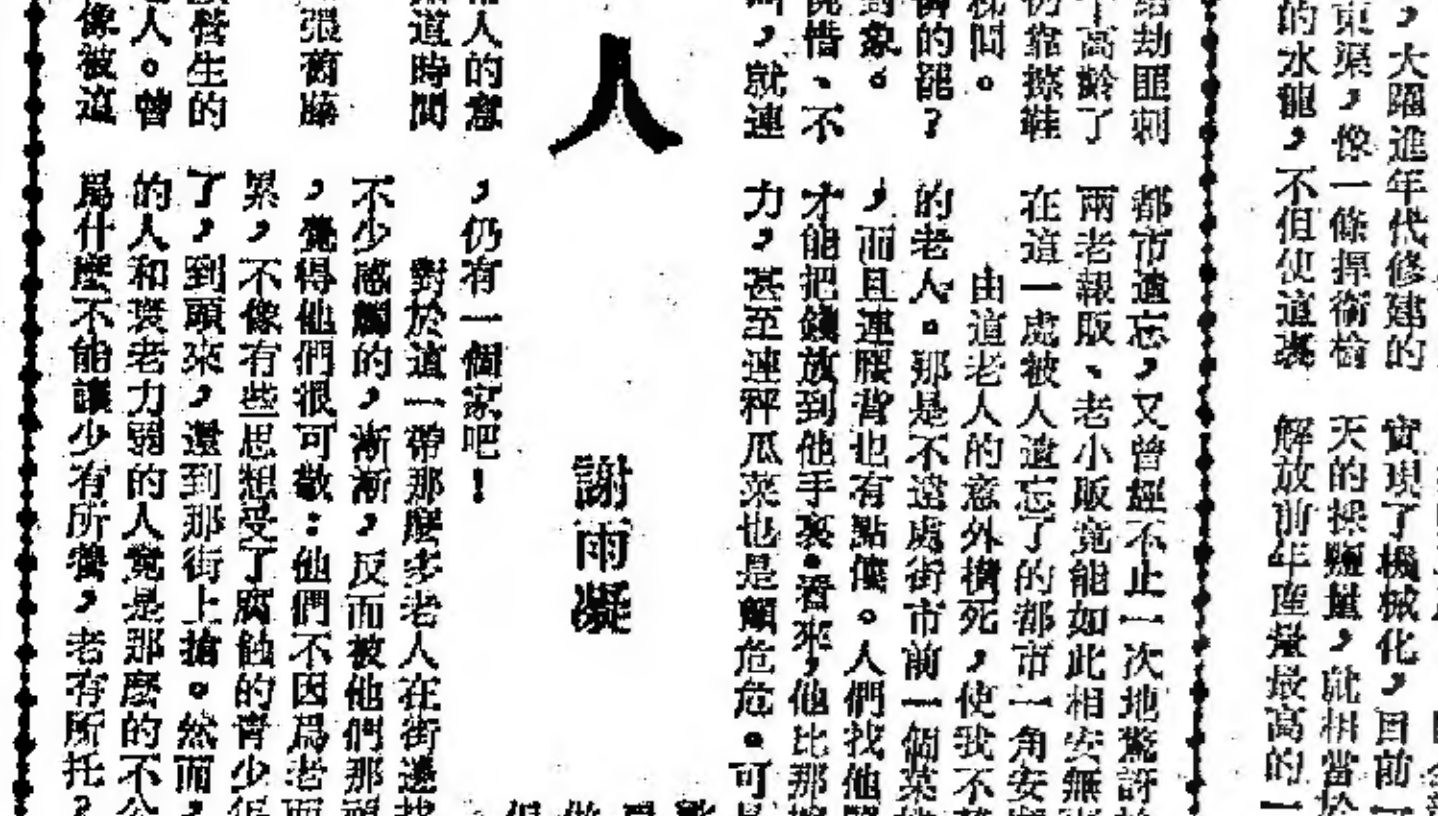 ，大躍進年代修建的
東渠，像一條捍衛
的水龍，不但使這裏
實現了機械化，目前
天的操鹽量，就相當於
解放前年產量最高的一
給劫匪刺
不高齡了
仍靠擦鞋
的罷？
對象。
惜、不
，就連
都市遺忘，又曾經不止一次地驚訝
兩老報販、老小販竟能如此相安無
在這一處被人遺忘了的都市一角安
由這老人的意外橫死，使我不
的老人。那是不遠處街市前一個菜
，而且連腰背也有點傴。人們找他
才能把錢放到他手裏。看來，他比那
力，甚至連秤瓜菜也是顫危危。可
人
謝雨凝
人的意
道時間
張蔔藤
生的
人。曾
像被這
，仍有一個家吧！
對於這一帶那麼多老人在街邊
不少感觸的，漸漸，反而被他們那
，覺得他們很可敬：他們不因爲老而
累，不像有些思想受了腐蝕的青少
了，到頭來，還到那街上搶。然而，
的人和衰老力弱的人竟是那麼的不公
爲什麼不能讓少有所養，老有所托？